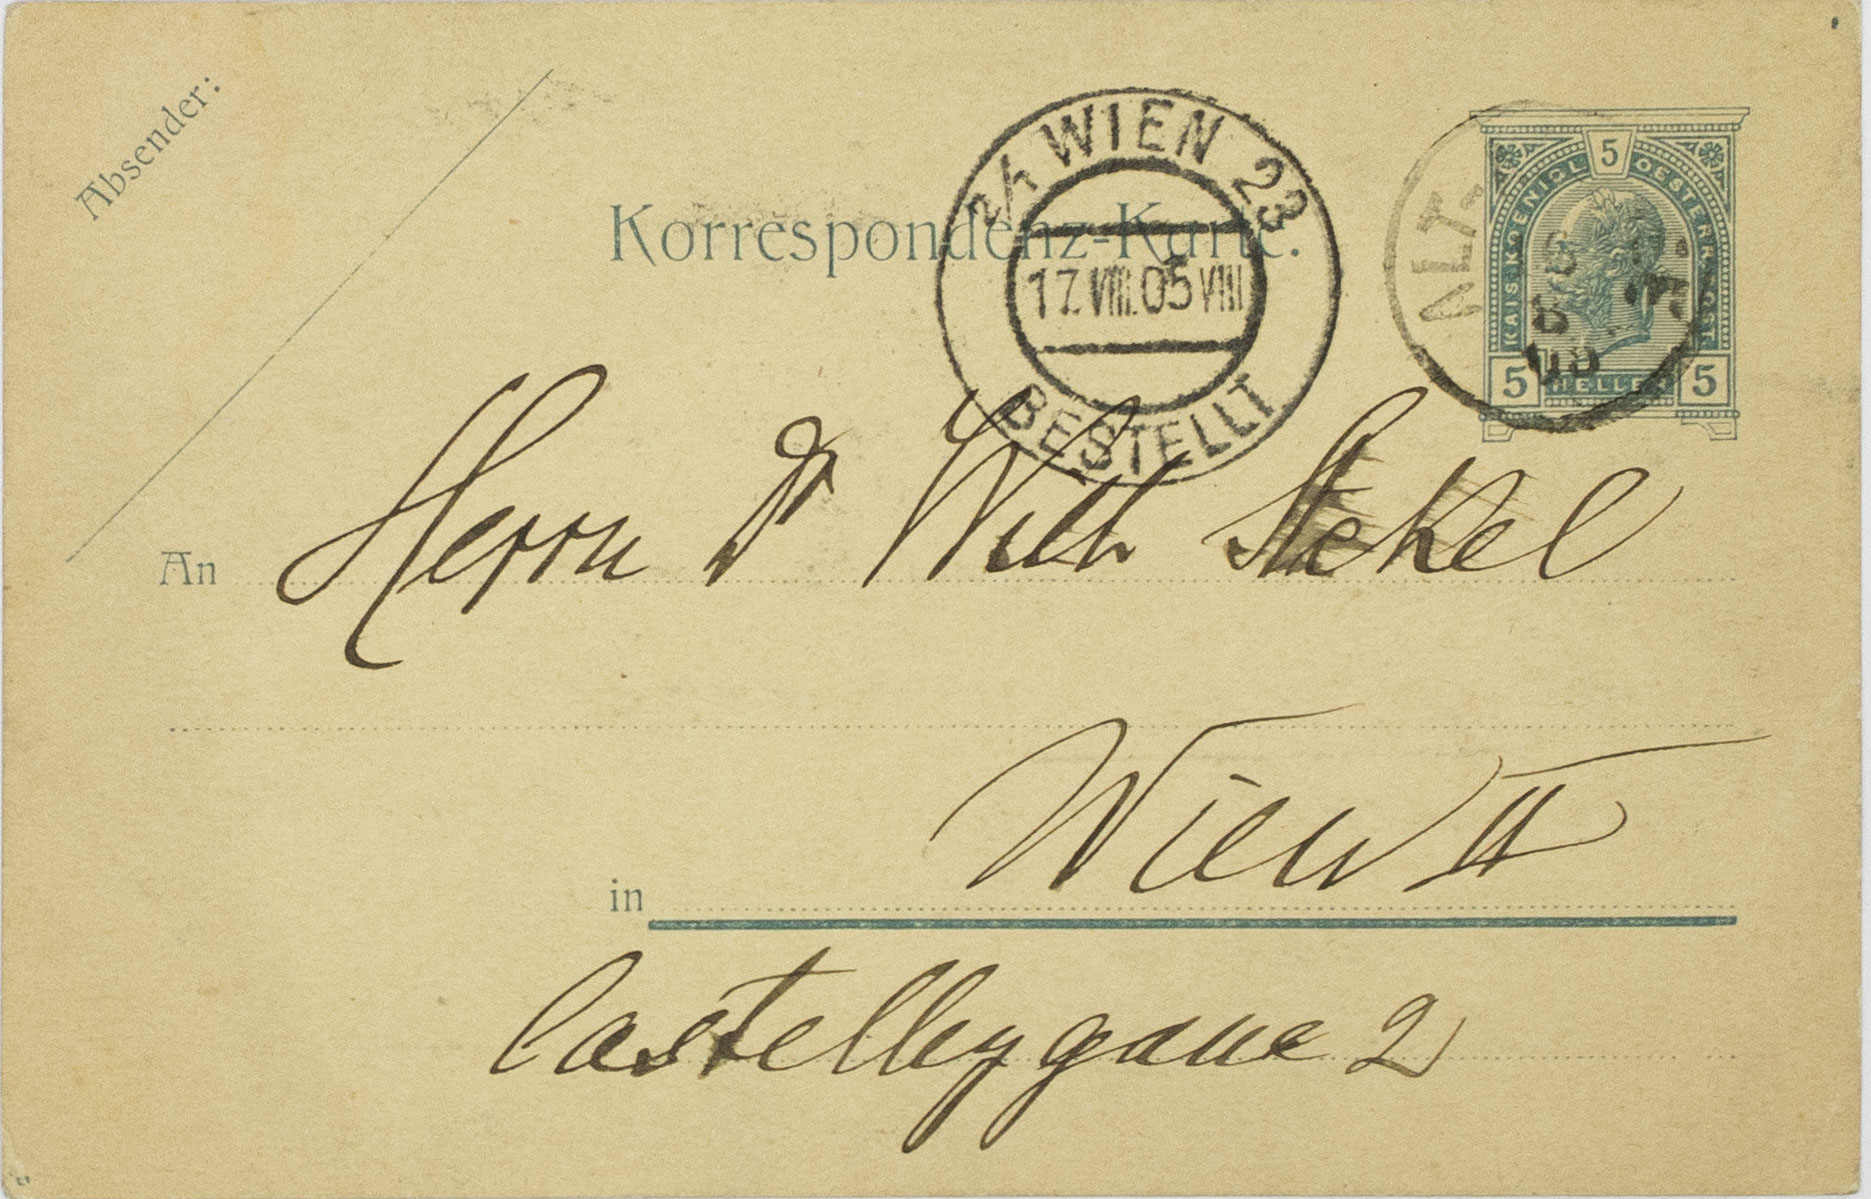 Absender:
Korrespondenz-Karte.
2/1 WIEN 23
17.VIII.05 VIII
BESTELLT
ALT
KAIS. KOENIGL. 5 OESTERR. POST
5 HELLER 5
An Herrn Dr Wilh Stekel
in Wien II
Castellezgasse 2